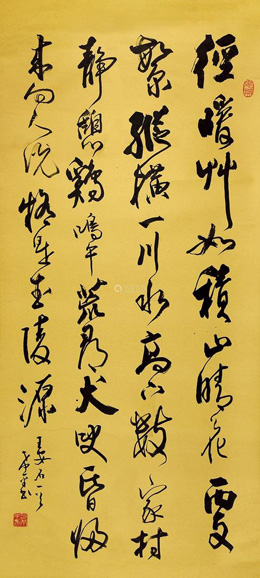 徑暖艸如積山晴花更
繁縱橫一川水高下數家村
靜憩鷄鳴午荒尋犬吠昏歸
來向人說是武陵源
王安石一首